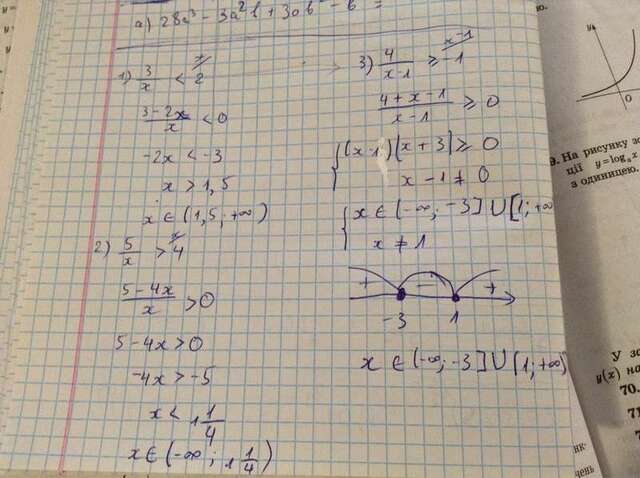 a) 28a³ - 3a²b + 3ab² - b =
1) 3/x < 2
x
(3-2x)/x < 0
-2x < -3
x > 1,5
x ∈ (1,5; +∞)
2) 5/x > 4
x
(5-4x)/x > 0
5-4x > 0
-4x > -5
x < 1 1/4
x ∈ (-∞; 1 1/4)
3) 4/(x-1) ≥ -1
x-1
(4+x-1)/(x-1) ≥ 0
{(x-1)(x+3) ≥ 0
x-1 ≠ 0
{x ∈ (-∞; -3] ∪ [1; +∞
x ≠ 1
+ - +
-3 1
x ∈ (-∞; -3] ∪ [1; +∞)
ю.
y
O
9. На рисунку зо
ції y = logₐ x
з одиницею.
У за
y(x) на
70.
71
нк-
чень